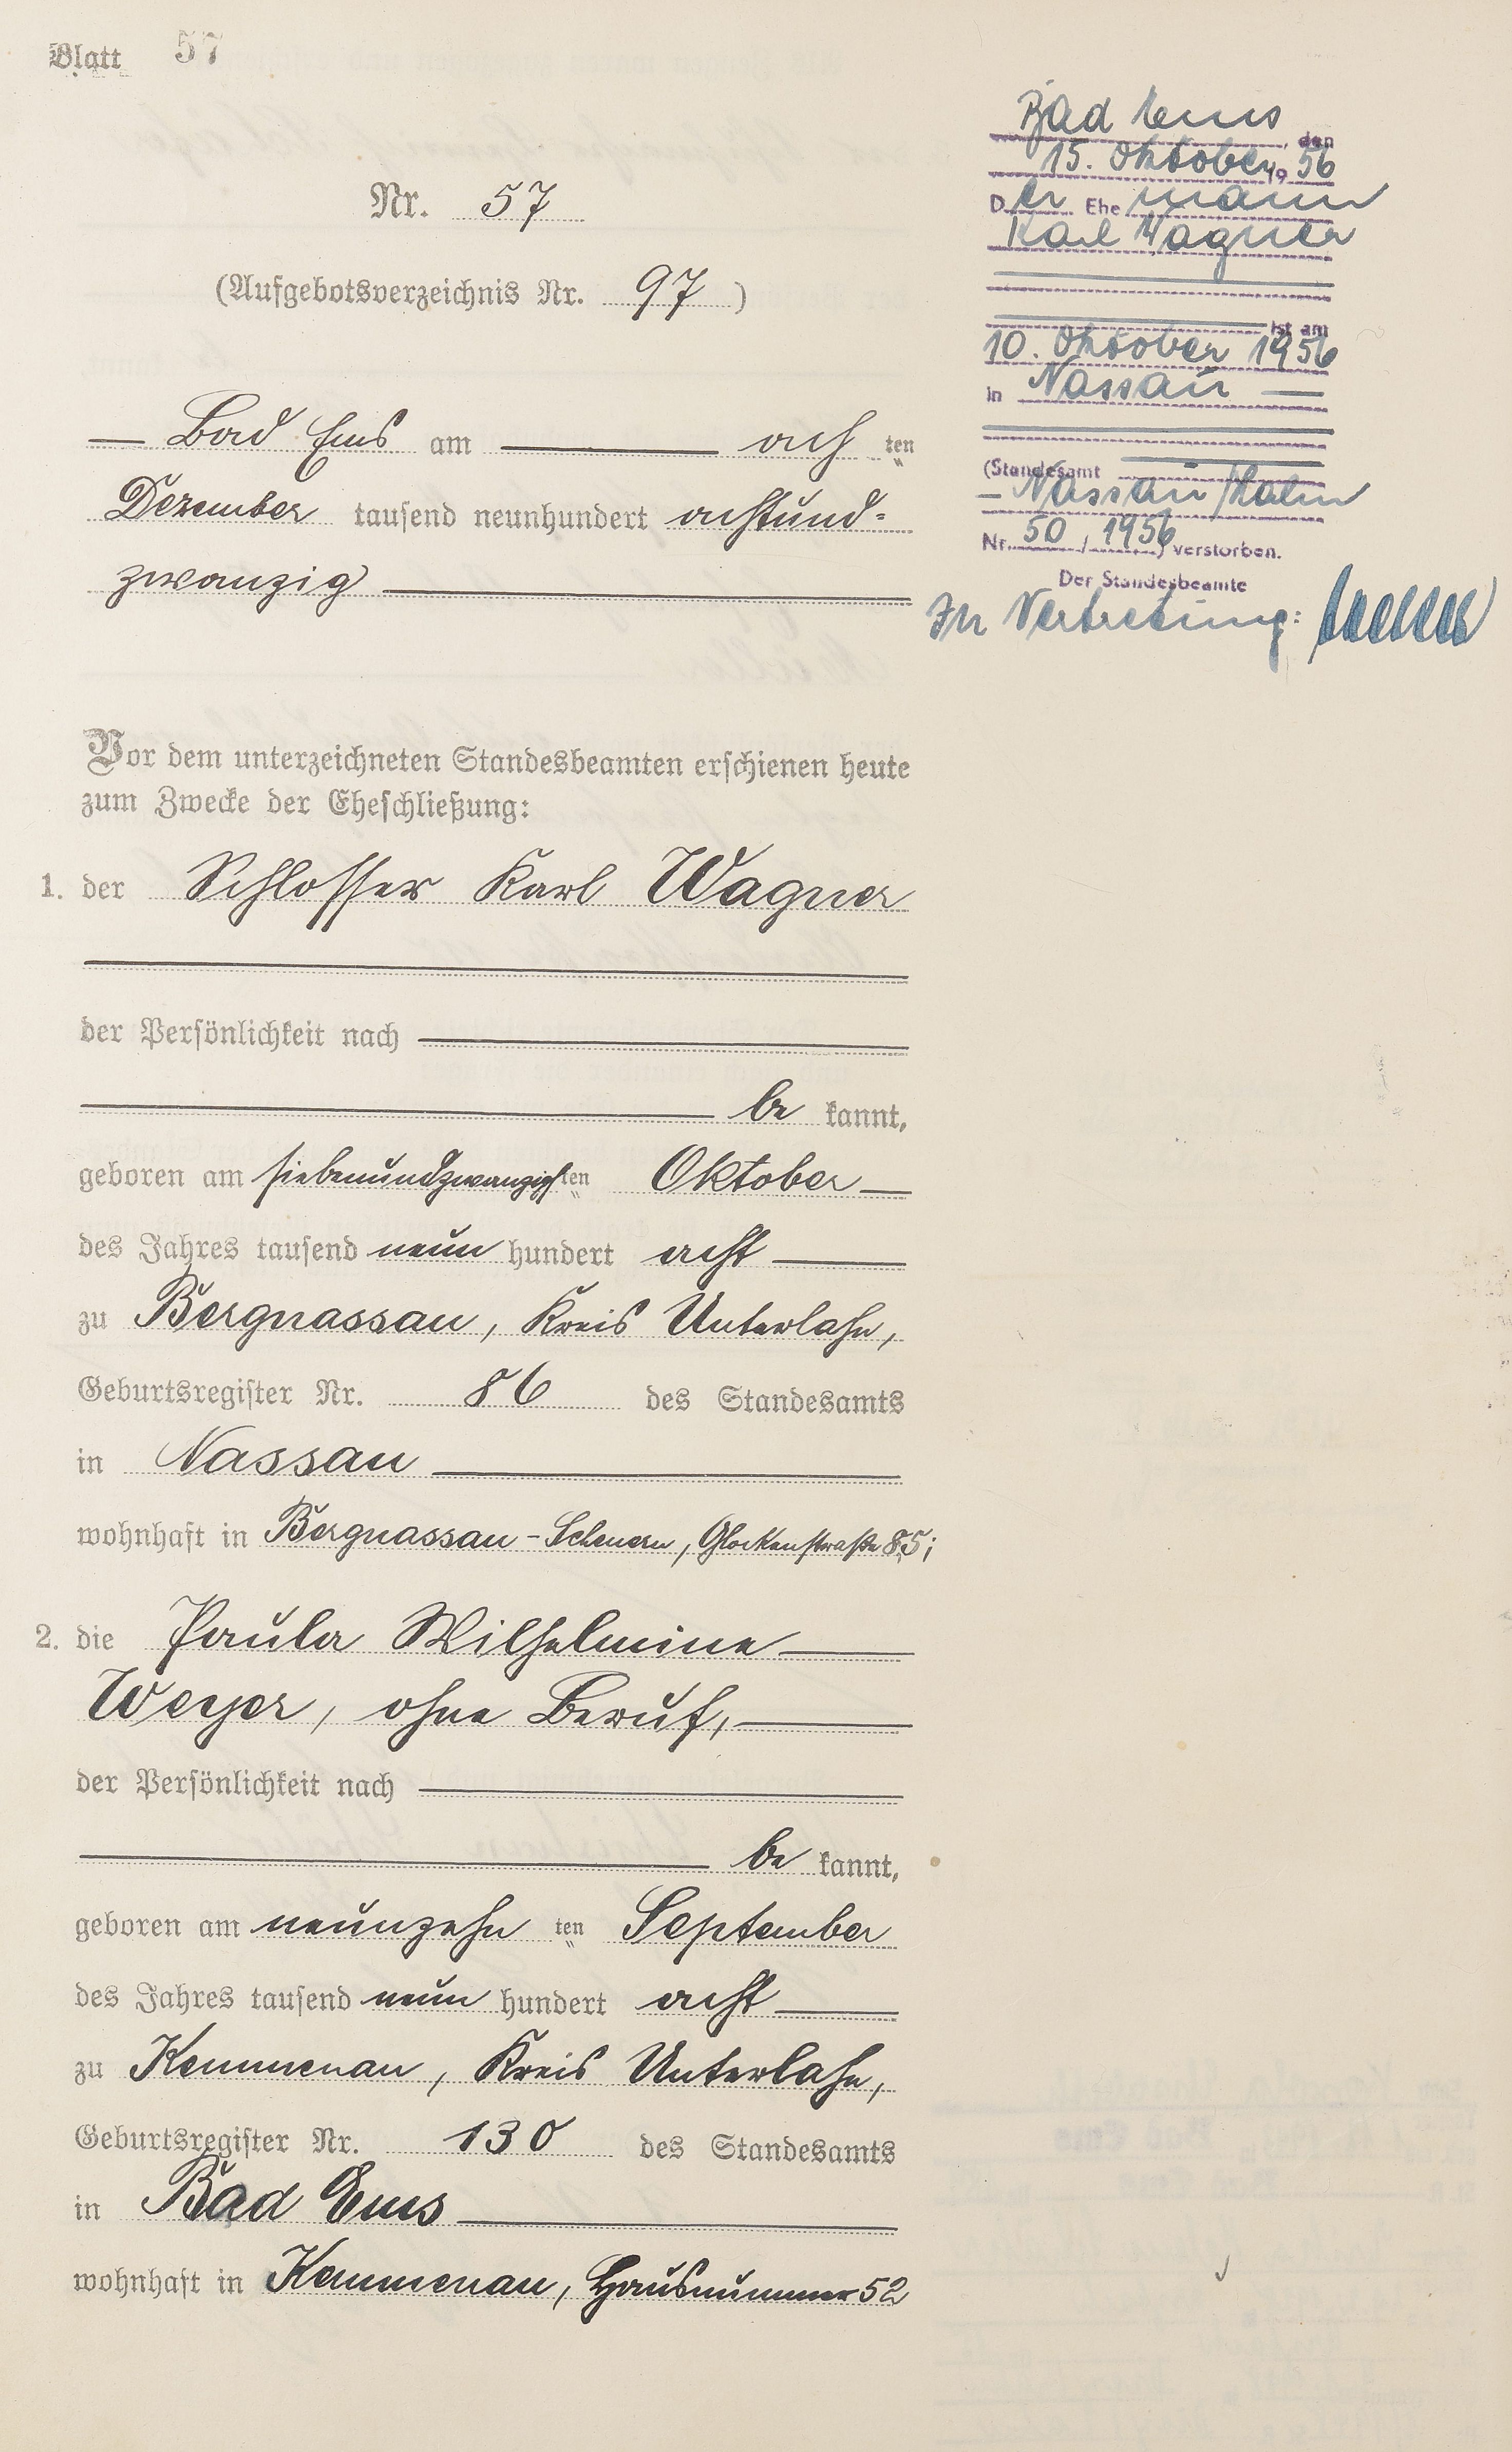 Blatt 57
Nr. 57
(Aufgebotsverzeichnis Nr. 97 )
Bad Ems am ach ten
Dezember tausend neunhundert achtund-
zwanzig
Vor dem unterzeichneten Standesbeamten erschienen heute
zum Zwecke der Eheschließung:
1. der Schlosser Karl Wagner
der Persönlichkeit nach
be kannt,
geboren am siebenundzwanzigsten Oktober
des Jahres tausend neun hundert acht
zu Bergnassau, Kreis Unterlahn,
Geburtsregister Nr. 86 des Standesamts
in Nassau
wohnhaft in Bergnassau-Scheuern, Glockenstraße 85;
2. die Paula Wilhelmine
Weyer, ohne Beruf,
der Persönlichkeit nach
be kannt,
geboren am neunzehn ten September
des Jahres tausend neun hundert acht
zu Kemmenau, Kreis Unterlahn,
Geburtsregister Nr. 130 des Standesamts
in Bad Ems
wohnhaft in Kemmenau, Hausnummer 52
Bad Ems, den
15. Oktober 19 56
Der Ehemann
Karl Wagner
ist am
10. Oktober 1956
in Nassau
(Standesamt
Nassau/Lahn
Nr. 50 / 1956) verstorben.
Der Standesbeamte
In Vertretung: